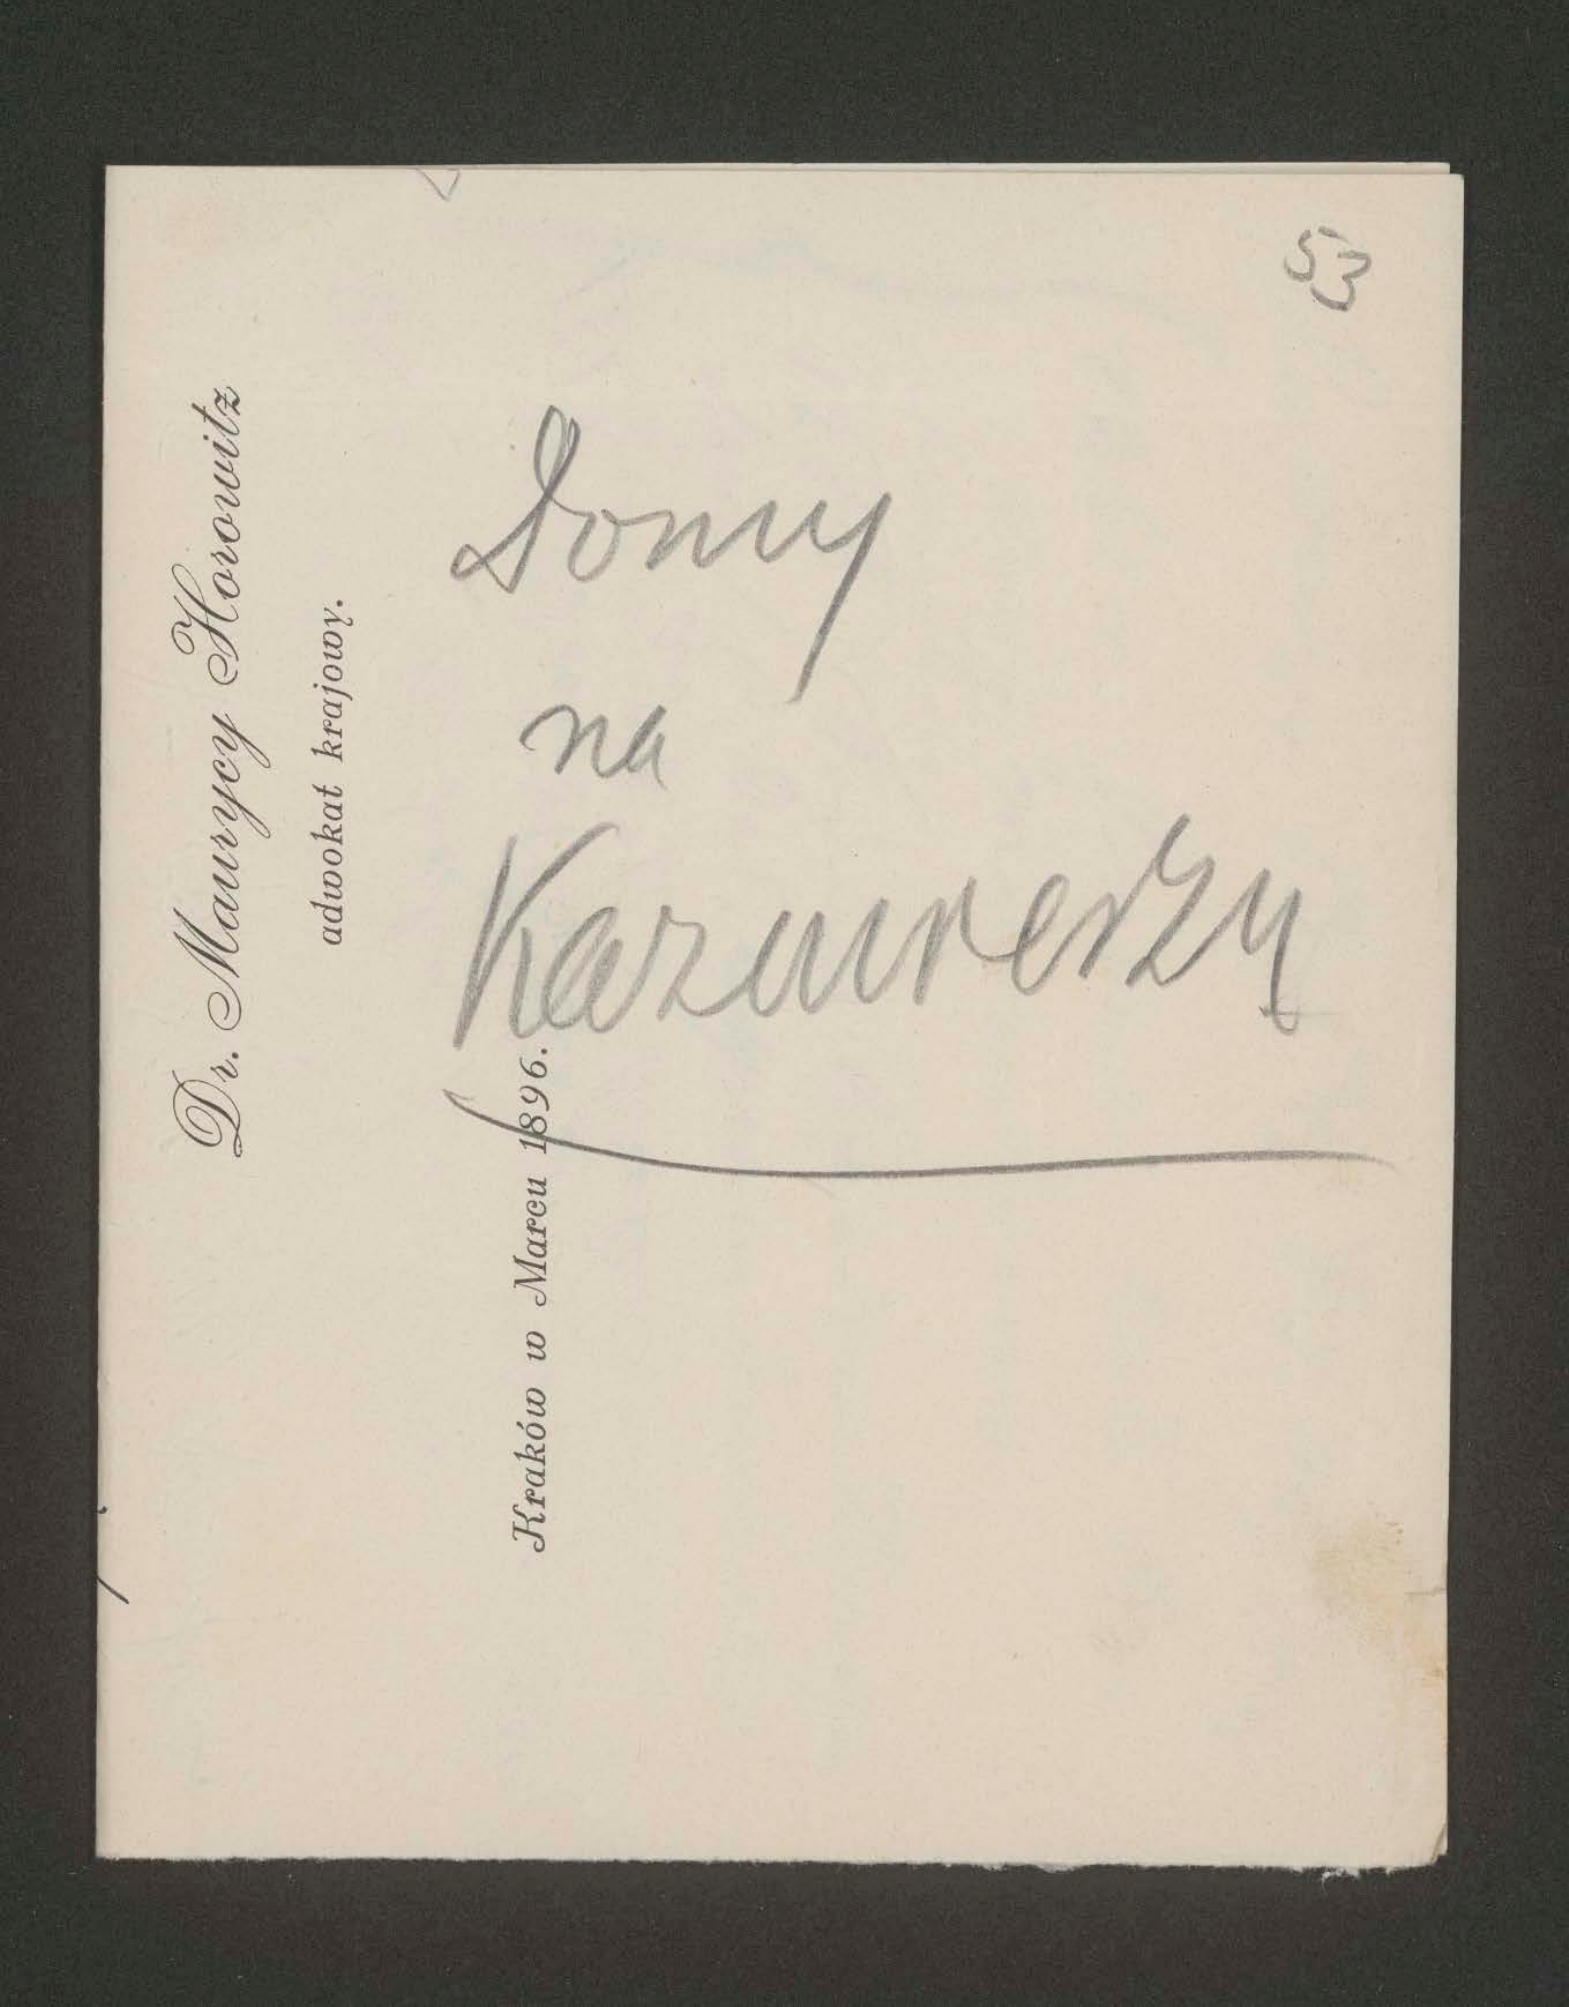 53
Domy
na
Kazimierzu
Dr. Maurycy Horowitz
adwokat krajowy.
Kraków w Marcu 1896.